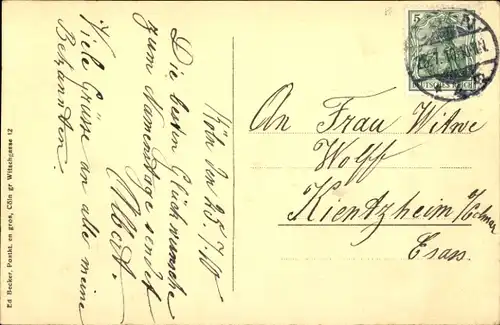 Köln den 25./7.10
Die besten Glückwünsche
zum Namenstage sendet
Albert.
Viele Grüsse an alle meine
Bekannten.
An Frau Witwe
Wolff
Kientzheim b/Colmar
Elsass.
5
DEUTSCHES REICH
Ed Becker, Postkt. en gros, Cöln gr Witschgasse 12